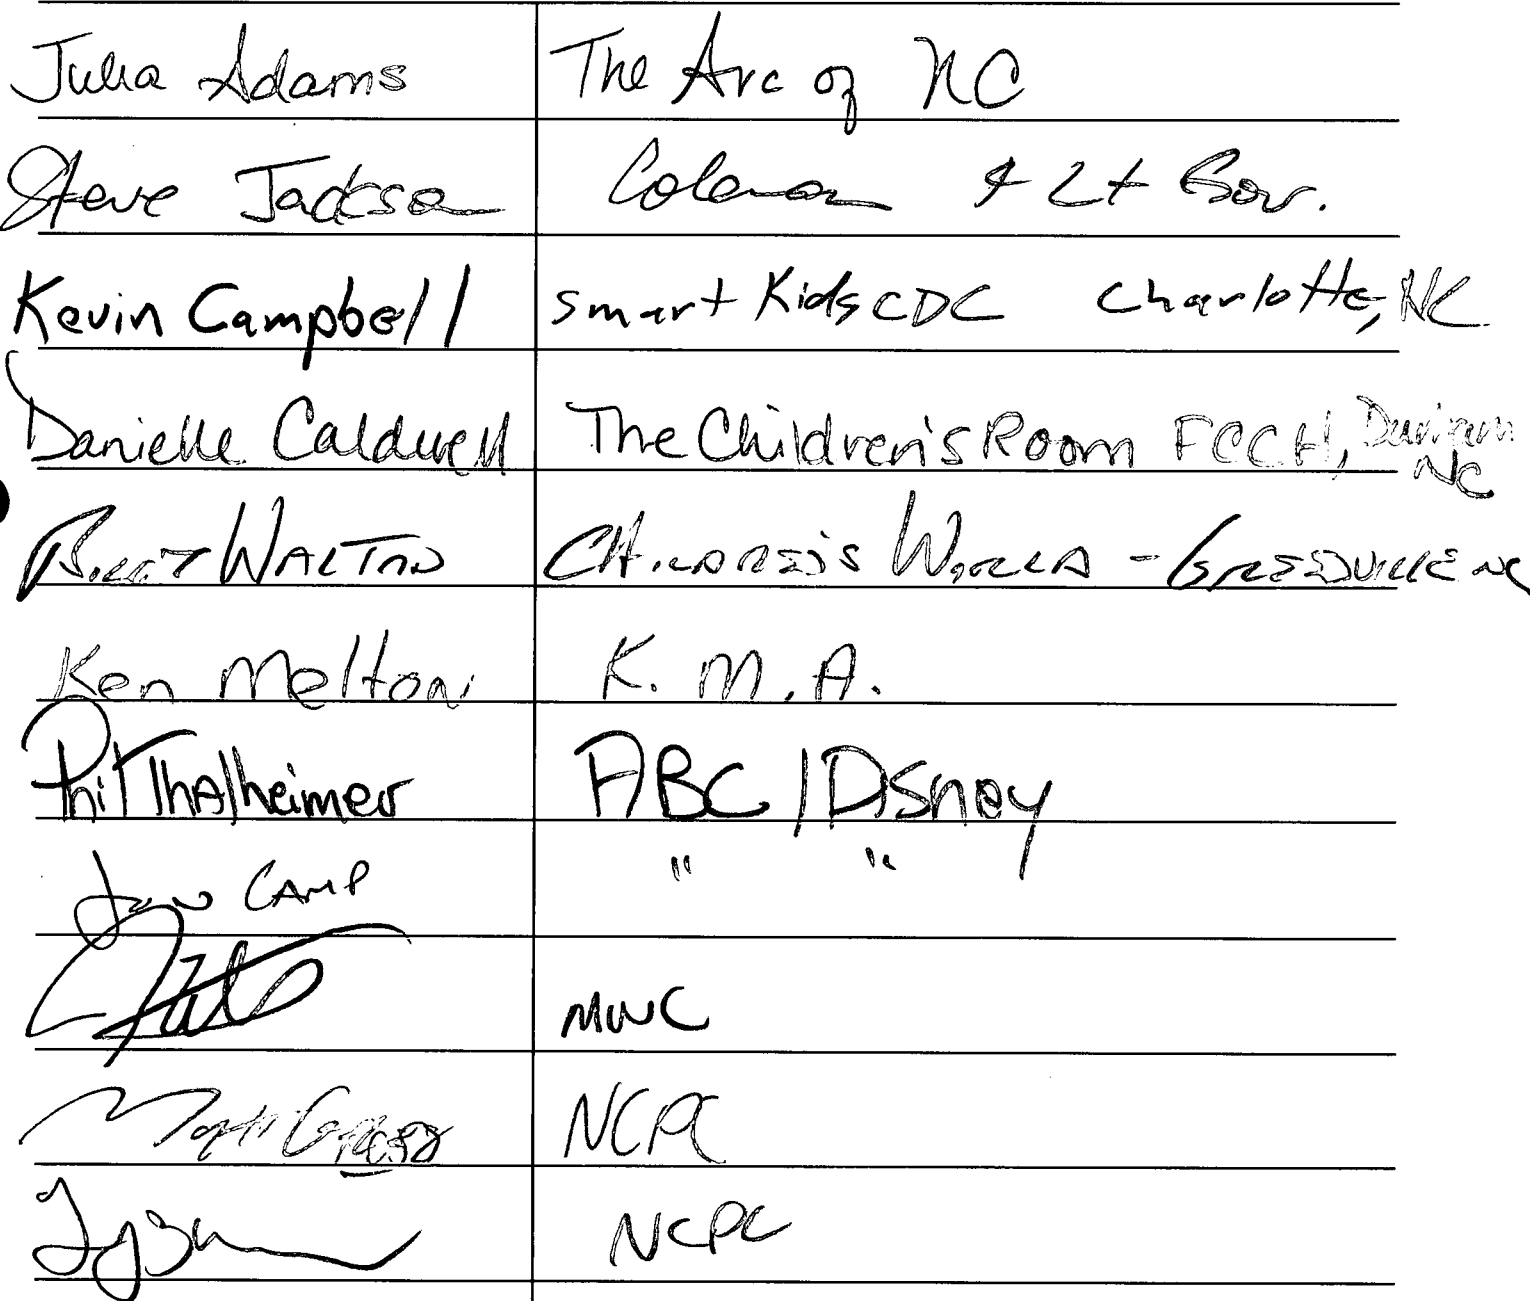 Julia Adams The Arc of NC
Steve Jackson Coleman 4 Lt Gov.
Kevin Campbell Smart Kids CDC Charlotte, NC
Danielle Caldwell The Children's Room FCCH, Durham NC
Walton Children's World - Greenville NC
Ken Melton K. M. A.
Phil Thalheimer ABC / Disney
Camp " "
MWC
Matt Gross NCPC
NCPC